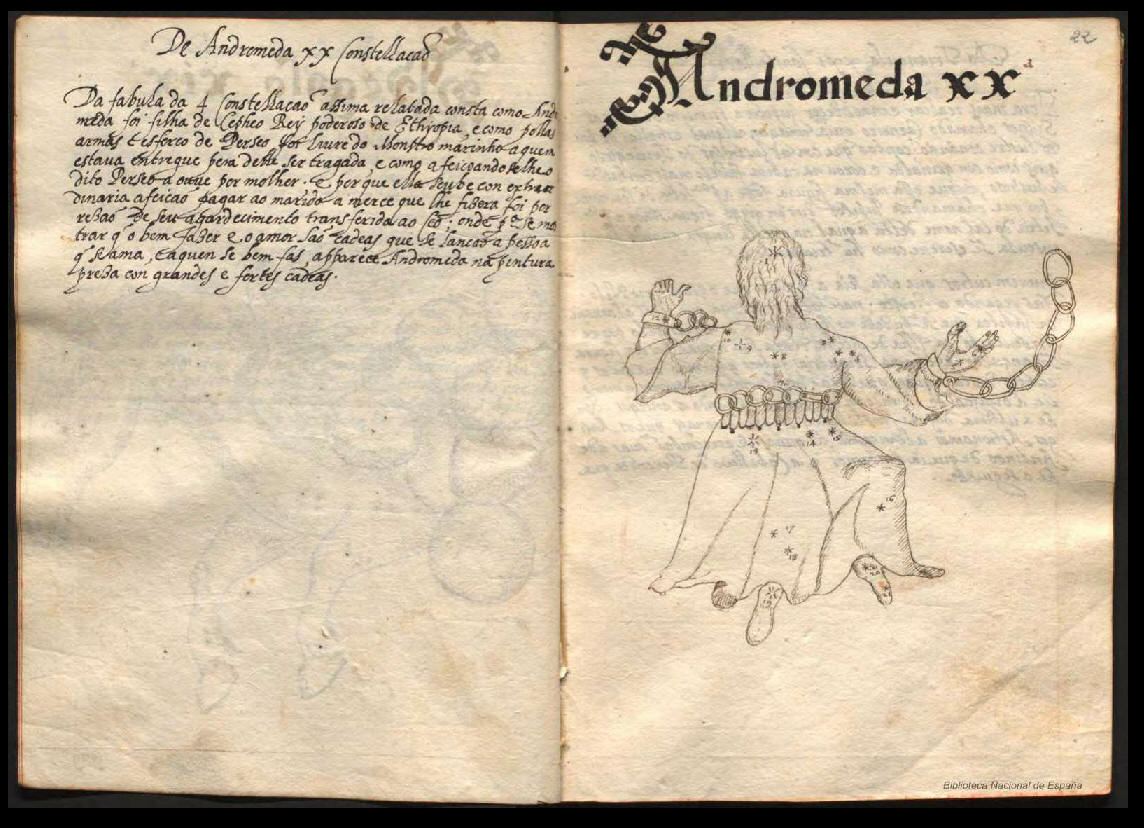 De Andromeda xx Constellacaõ
Da fabula da 4 Constellaçaõ assima relatada consta como Andro
meda foi filha de Cepheo Rey poderoso de Ethyopia, e como pollas
armas e esforco de Perseo foi livre do Monstro marinho a quem
estava entregue pera delle ser tragada e como afeiçoandoselhe o
dito Perseo a ouve por molher. E porque ella soube con extraor
dinaria afeicaõ pagar ao marido a merce que lhe fizera foi por
rezaõ de seu agardecimento transferida ao Ceo. onde pª se mos
trar q̃ o bem fazer e o amor saõ cadeas que se lançaõ a pessoa
q̃ se ama, e a quem se bem fas apparece Andromeda na pintura
preza con grandes e fortes cadeas.
22
de
Andromeda xx
Biblioteca Nacional de España